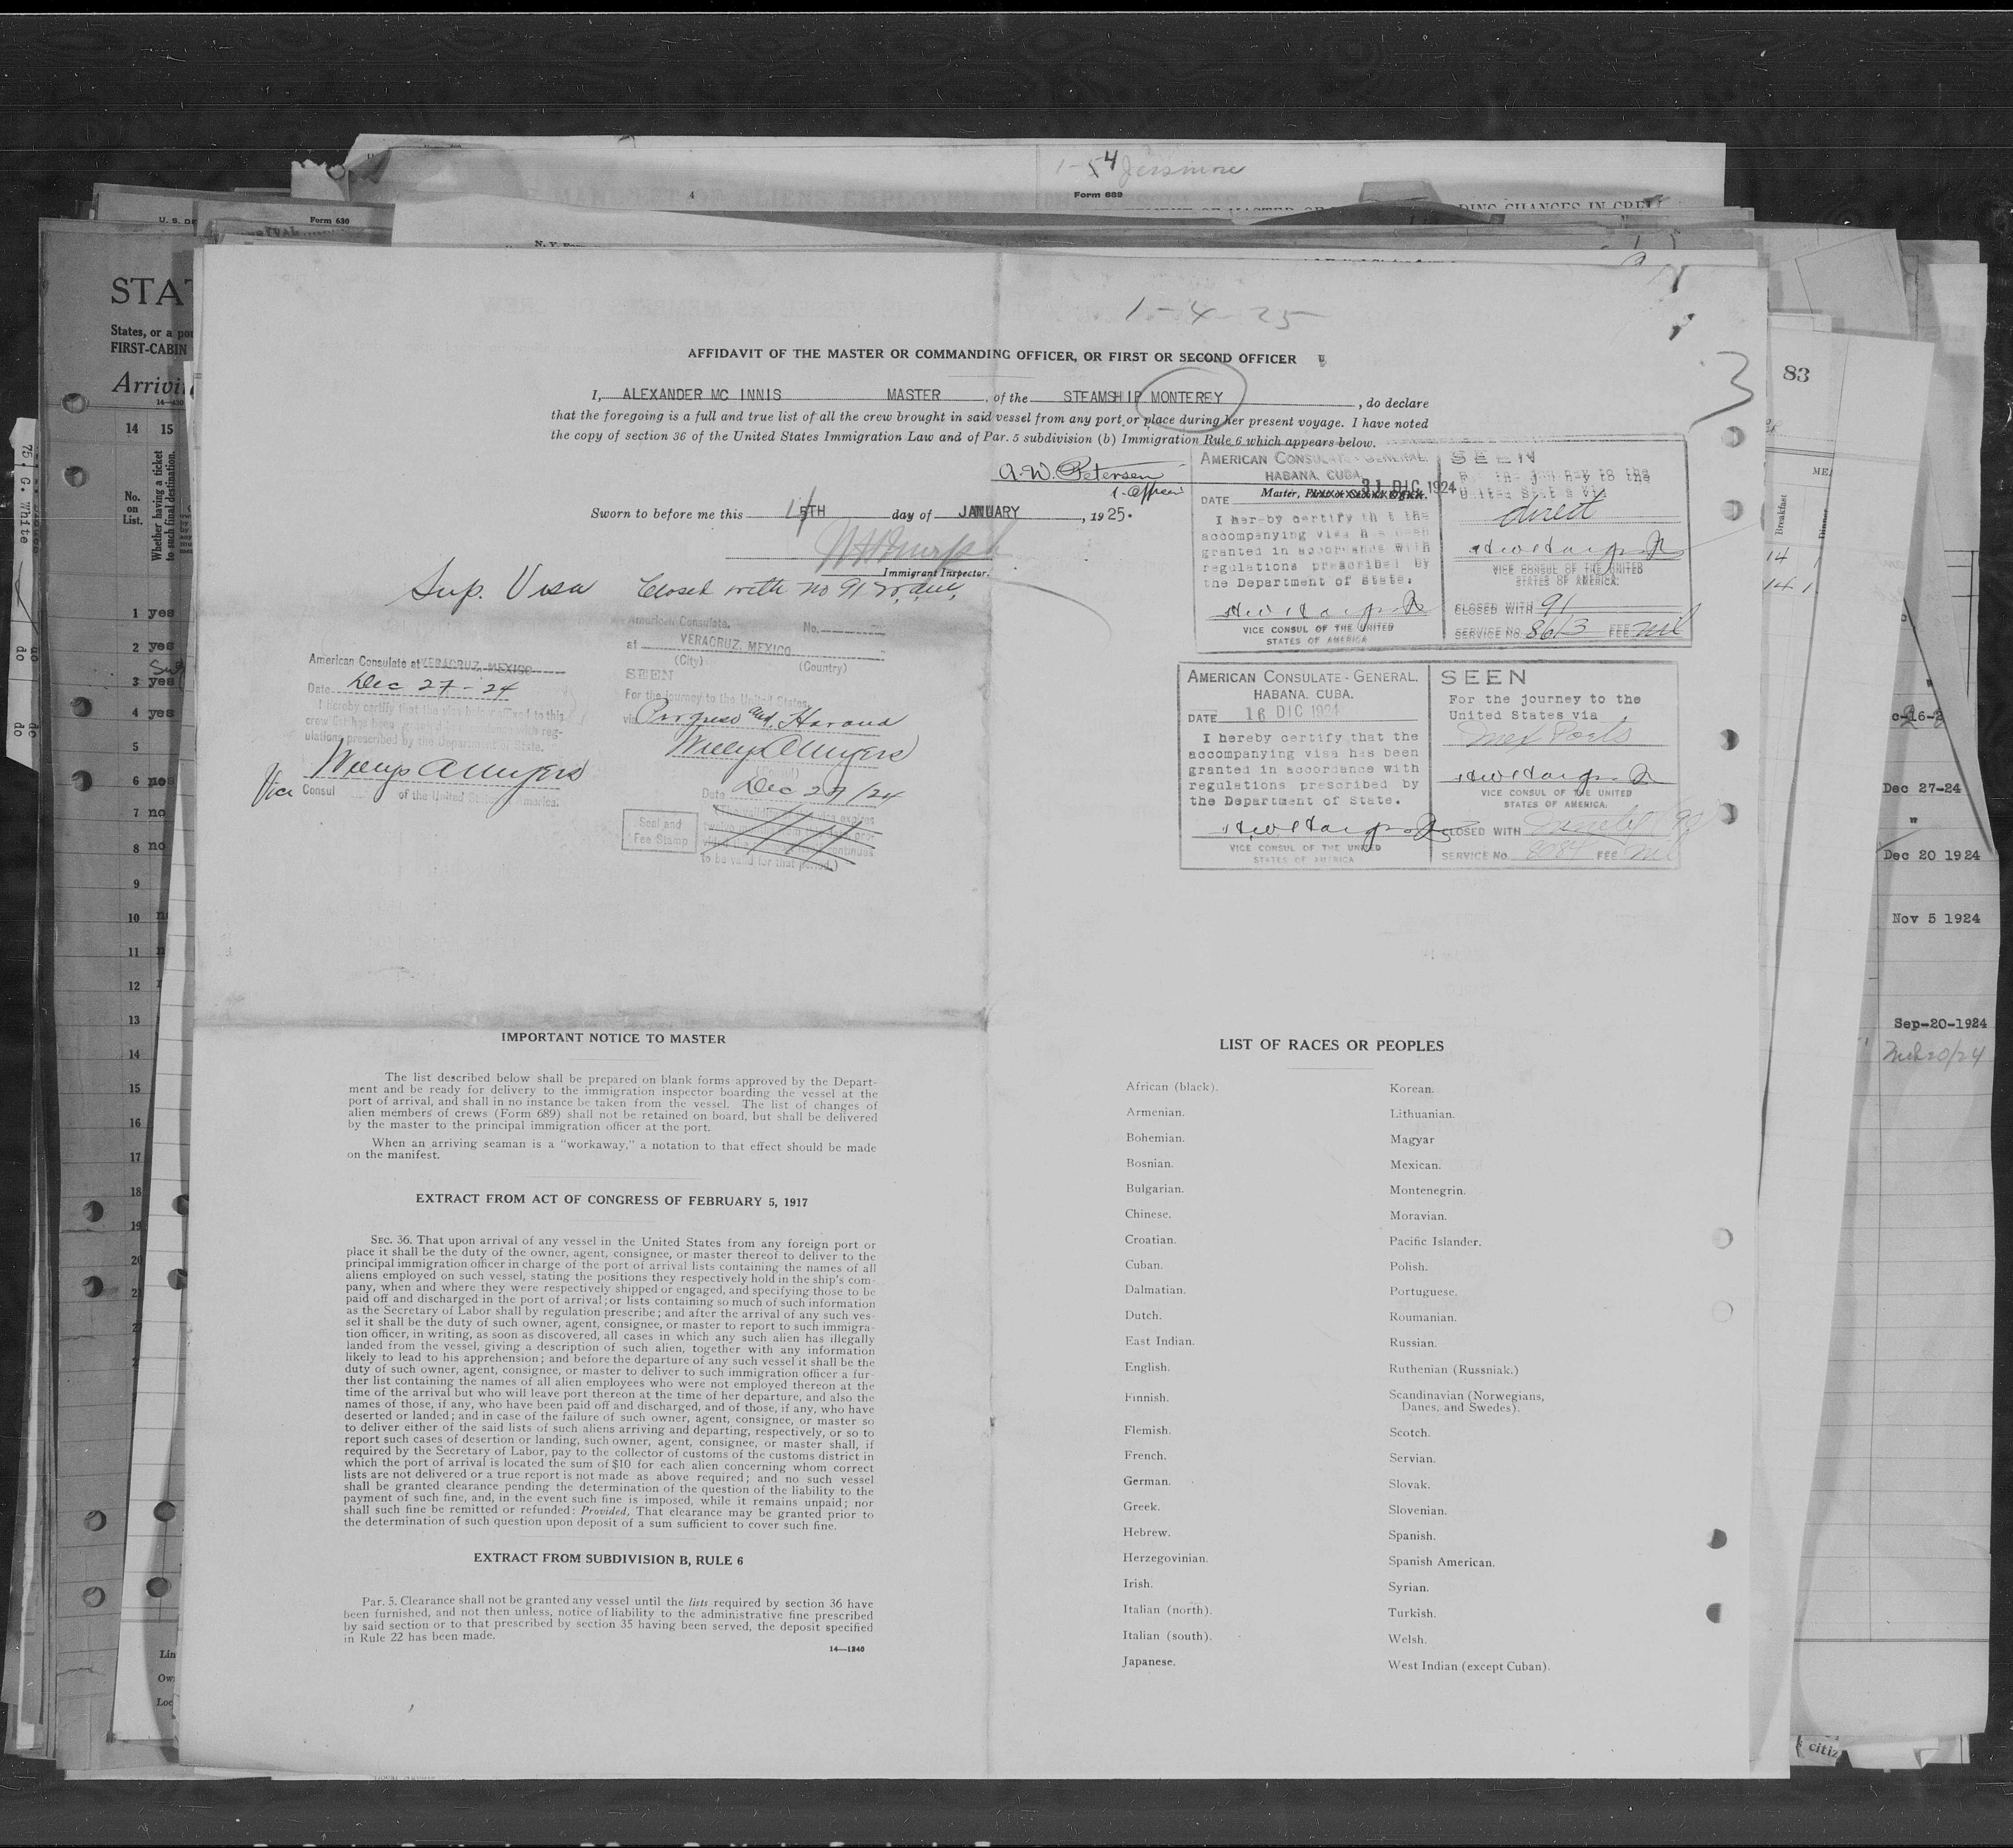 1-4 Jessmore
4
Form 689
U. S. DE
Form 630
1-4-25
3
AFFIDAVIT OF THE MASTER OR COMMANDING OFFICER, OR FIRST OR SECOND OFFICER
I, ALEXANDER MC INNIS MASTER, of the STEAMSHIP MONTEREY, do declare
that the foregoing is a full and true list of all the crew brought in said vessel from any port or place during her present voyage. I have noted
the copy of section 36 of the United States Immigration Law and of Par. 5 subdivision (b) Immigration Rule 6 which appears below.
A. W. Petersen
1. Officer
Master,
Sworn to before me this 5TH day of JANUARY, 1925.
Immigrant Inspector.
Sup. Visa Closed with no 91
AMERICAN CONSULATE-GENERAL,
HABANA, CUBA.
DATE 31 DIC 1924
I hereby certify that the
accompanying visa has been
granted in accordance with
regulations prescribed by
the Department of State.
VICE CONSUL OF THE UNITED
STATES OF AMERICA
SEEN
For the journey to the
United States via
direct
VICE CONSUL OF THE UNITED
STATES OF AMERICA.
CLOSED WITH 91
SERVICE No. 8613 FEE nil
American Consulate at VERACRUZ, MEXICO
Date Dec 27-24
I hereby certify that the visa below affixed to this
crew list has been granted in accordance with reg-
ulations prescribed by the Department of State.
Willys A Myers
Vice Consul of the United States of America.
American Consulate, No.
at VERACRUZ, MEXICO
(City) (Country)
SEEN
For the journey to the United States,
via Progreso and Havana
Willys A Myers
Date Dec 27/24
Seal and
Fee Stamp
to be valid for that period.)
AMERICAN CONSULATE-GENERAL,
HABANA, CUBA.
DATE 16 DIC 1924
I hereby certify that the
accompanying visa has been
granted in accordance with
regulations prescribed by
the Department of State.
VICE CONSUL OF THE UNITED
STATES OF AMERICA
SEEN
For the journey to the
United States via
Mex Ports
VICE CONSUL OF THE UNITED
STATES OF AMERICA.
CLOSED WITH
SERVICE No. 8084 FEE nil
IMPORTANT NOTICE TO MASTER
The list described below shall be prepared on blank forms approved by the Depart-
ment and be ready for delivery to the immigration inspector boarding the vessel at the
port of arrival, and shall in no instance be taken from the vessel. The list of changes of
alien members of crews (Form 689) shall not be retained on board, but shall be delivered
by the master to the principal immigration officer at the port.
When an arriving seaman is a "workaway," a notation to that effect should be made
on the manifest.
EXTRACT FROM ACT OF CONGRESS OF FEBRUARY 5, 1917
SEC. 36. That upon arrival of any vessel in the United States from any foreign port or
place it shall be the duty of the owner, agent, consignee, or master thereof to deliver to the
principal immigration officer in charge of the port of arrival lists containing the names of all
aliens employed on such vessel, stating the positions they respectively hold in the ship's com-
pany, when and where they were respectively shipped or engaged, and specifying those to be
paid off and discharged in the port of arrival; or lists containing so much of such information
as the Secretary of Labor shall by regulation prescribe; and after the arrival of any such ves-
sel it shall be the duty of such owner, agent, consignee, or master to report to such immigra-
tion officer, in writing, as soon as discovered, all cases in which any such alien has illegally
landed from the vessel, giving a description of such alien, together with any information
likely to lead to his apprehension; and before the departure of any such vessel it shall be the
duty of such owner, agent, consignee, or master to deliver to such immigration officer a fur-
ther list containing the names of all alien employees who were not employed thereon at the
time of the arrival but who will leave port thereon at the time of her departure, and also the
names of those, if any, who have been paid off and discharged, and of those, if any, who have
deserted or landed; and in case of the failure of such owner, agent, consignee, or master so
to deliver either of the said lists of such aliens arriving and departing, respectively, or so to
report such cases of desertion or landing, such owner, agent, consignee, or master shall, if
required by the Secretary of Labor, pay to the collector of customs of the customs district in
which the port of arrival is located the sum of $10 for each alien concerning whom correct
lists are not delivered or a true report is not made as above required; and no such vessel
shall be granted clearance pending the determination of the question of the liability to the
payment of such fine, and, in the event such fine is imposed, while it remains unpaid; nor
shall such fine be remitted or refunded: Provided, That clearance may be granted prior to
the determination of such question upon deposit of a sum sufficient to cover such fine.
EXTRACT FROM SUBDIVISION B, RULE 6
Par. 5. Clearance shall not be granted any vessel until the lists required by section 36 have
been furnished, and not then unless, notice of liability to the administrative fine prescribed
by said section or to that prescribed by section 35 having been served, the deposit specified
in Rule 22 has been made.
14—1240
LIST OF RACES OR PEOPLES
African (black).
Armenian.
Bohemian.
Bosnian.
Bulgarian.
Chinese.
Croatian.
Cuban.
Dalmatian.
Dutch.
East Indian.
English.
Finnish.
Flemish.
French.
German.
Greek.
Hebrew.
Herzegovinian.
Irish.
Italian (north).
Italian (south).
Japanese.
Korean.
Lithuanian.
Magyar
Mexican.
Montenegrin.
Moravian.
Pacific Islander.
Polish.
Portuguese.
Roumanian.
Russian.
Ruthenian (Russniak.)
Scandinavian (Norwegians,
Danes, and Swedes).
Scotch.
Servian.
Slovak.
Slovenian.
Spanish.
Spanish American.
Syrian.
Turkish.
Welsh.
West Indian (except Cuban).
STA
States, or a po
FIRST-CABIN
Arrivi
14 15
No.
on
List.
Whether having a ticket
to such final destination.
1 yes
2 yes
3 yes
4 yes
5
6 no
7 no
8 no
9
10
11
12
13
14
15
16
17
18
19
20
75. G. White
do do
do do
83
Breakfast
14
14 1
Dec 27-24
"
Dec 20 1924
Nov 5 1924
Sep-20-1924
citiz